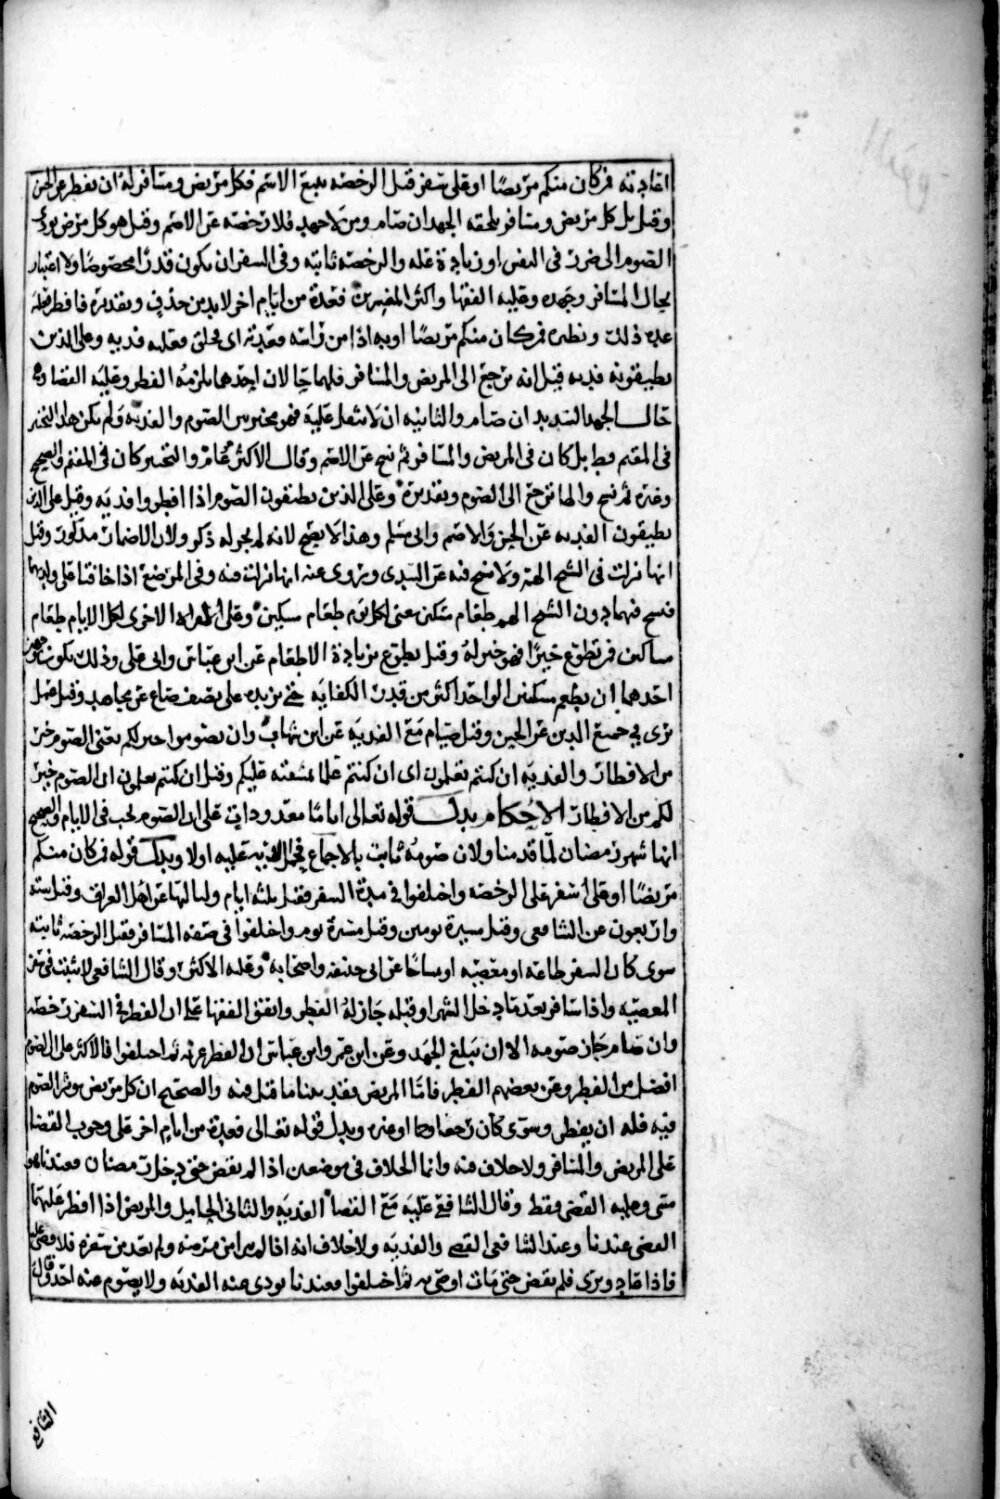 اعادته فمن كان منكم مريضا او على سفر قيل الرخصة تتبع الاسم فكل مريض ومسافر له ان يفطر عن الحسن
وقيل بل كل مريض ومسافر يلحقه الجهد ان صام ومن لا جهد فلا رخصة عن الاصم وقيل هو كل مرض يؤدي
الصوم الى ضرر في النفس او زيادة علة والرخصة ثابته وفي السفر ان يكون قدرا مخصوصا ولا اعتبار
بحال المسافر وجهده وعليه الفقها واكثر المفسرين فعدة من ايام اخر لا بد من حذف وتقديره فافطر فعليه
عدة ذلك ونظيره فمن كان منكم مريضا او به اذا من راسه ففدية اي فحلق فعليه فديه وعلى الذين
يطيقونه فديه قيل انه يرجع الى المريض والمسافر فلهما حالان احدهما يلزمه الفطر وعليه القضا وهو
حال الجهد الشديد ان صام والثانيه ان لا يثقل عليه فهو مخير بين الصوم والفديه ولم يكن هذا التخيير
في المقيم قط بل كان في المريض والمسافر ثم نسخ عن الاصم وقال الاكثر عام والتخيير كان في المقيم والصحيح
وغيره ثم نسخ والها ترجع الى الصوم وتقديره وعلى الذين يطيقون الصوم اذا افطروا فديه وقيل على الذين
يطيقون الفديه عن الحسن والاصم وابي مسلم وهذا لا يصح لانه لم يجر له ذكر ولان الاضمار مذكور وقيل
انها نزلت في الشيخ الهم ولا نسخ فيه عن السدي وتروى عنه انها نزلت فيه وفي المرضع اذا خافتا على ولديهما
فنسخ فيهما دون الشيخ الهم طعام مسكين يعني لكل يوم طعام مسكين وعلى القراءة الاخرى لكل الايام طعام
مساكين فمن تطوع خيرا فهو خير له وقيل يطوع بزيادة الاطعام عن ابن عباس وابي علي وذلك يكون بوجهين
احدهما ان يطعم مسكين الواحد اكثر من قدر الكفايه حتى يزيده على نصف صاع عن مجاهد وقيل عمل
برى في جميع الدين عن الحسن وقيل صيام مع الفديه عن ابن شهاب وان تصوموا خير لكم يعني الصوم خير
من الافطار والفديه ان كنتم تعلمون اي ان كنتم علما بمشقته عليكم وقيل ان كنتم تعلمون ان الصوم خير
لكم من الافطار الاحكام يدل قوله تعالى اياما معدودات على ان الصوم يجب في الايام والصحيح
انها شهر رمضان لما قدمنا ولان صومه ثابت بالاجماع فحمل الايه عليه اولا ويدل قوله فمن كان منكم
مريضا او على سفر على الرخصة واختلفوا في مدة السفر فقيل ثلثة ايام ولياليها عن اهل العراق وقيل ستة
واربعون عن الشافعي وقيل مسيرة يومين وقيل مسيرة يوم واختلفوا في صفة المسافر فقيل الرخصة ثابته
سوى كان السفر طاعه او معصيه او مباحا عن ابي حنيفه واصحابه وعليه الاكثر وقال الشافعي لا يثبت في سفر
المعصيه واذا سافر بعد ما دخل الشهر او قبله جاز له الفطر واتفق الفقها على ان الفطر في السفر رخصه
وان صام جاز صومه الا ان يبلغ الجهد وعن ابن عمر وابن عباس ان الفطر عزمه ثم اختلفوا فالاكثر على ان الصوم
افضل من الفطر وعن بعضهم الفطر فاما المريض فقد بينا ما قيل فيه والصحيح ان كل مريض يوثر الصوم
فيه فله ان يفطر وسوى كان رجفا وحما او غيره ويدل قوله تعالى فعدة من ايام اخر على وجوب القضا
على المريض والمسافر ولا خلاف فيه وانما الخلاف في موضعين اذا لم يقض حتى دخل رمضان فعندنا هو
متى وعليه القضى فقط وقال الشافعي عليه مع القضا الفديه والثاني الحامل والمريض اذا افطر عليهما
القضى عندنا وعند الشافعي القضى والفديه ولا خلاف انه اذا لم يبرا من مرضه ولم يعد من سفره فلا قضى عليه
فاذا عاد وبرى فلم يقض حتى مات اوصى به ثم اختلفوا فعندنا يودى عنه الفديه ولا يصوم عنه احد وقال
الشافعي